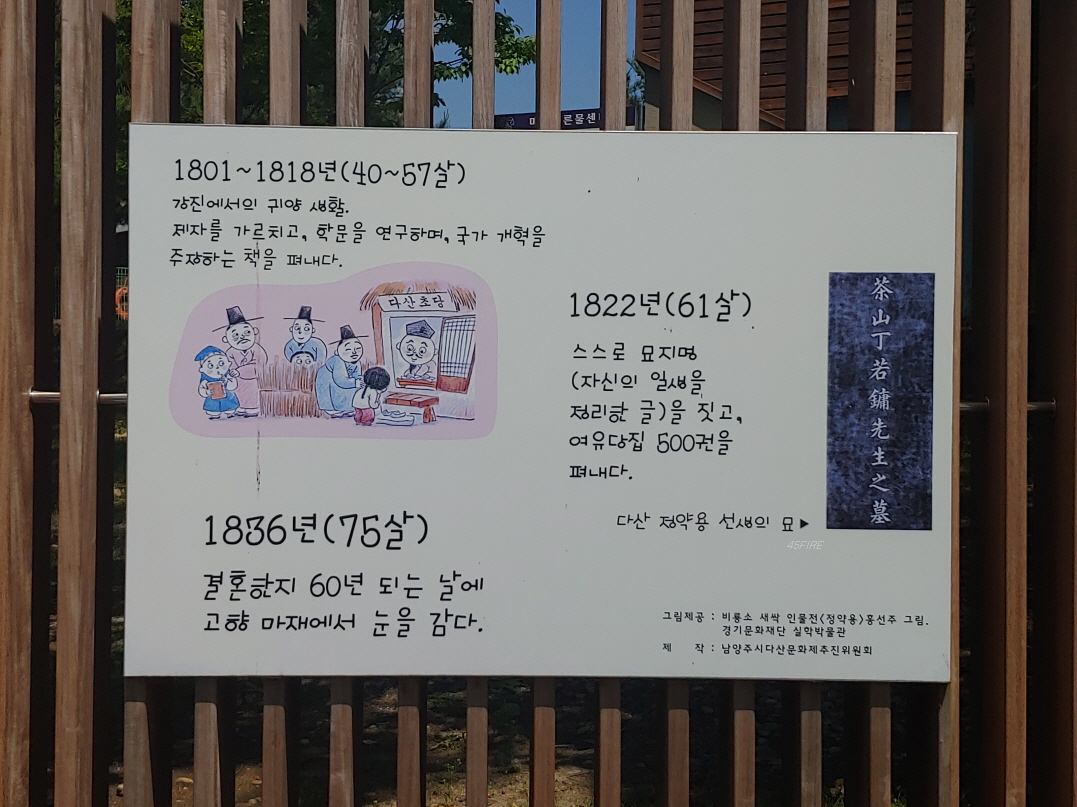 1801~1818년(40~57살)
강진에서의 귀양 생활.
제자를 가르치고, 학문을 연구하며, 국가 개혁을
주장하는 책을 펴내다.
다산초당
1822년(61살)
스스로 묘지명
(자신의 일생을
정리한 글)을 짓고,
여유당집 500권을
펴내다.
다산 정약용 선생의 묘▶
茶山丁若鏞先生之墓
45FIRE
1836년(75살)
결혼한지 60년 되는 날에
고향 마재에서 눈을 감다.
그림제공 : 비룡소 새싹 인물전(정약용)홍선주 그림.
경기문화재단 실학박물관
제 작 : 남양주시다산문화제추진위원회